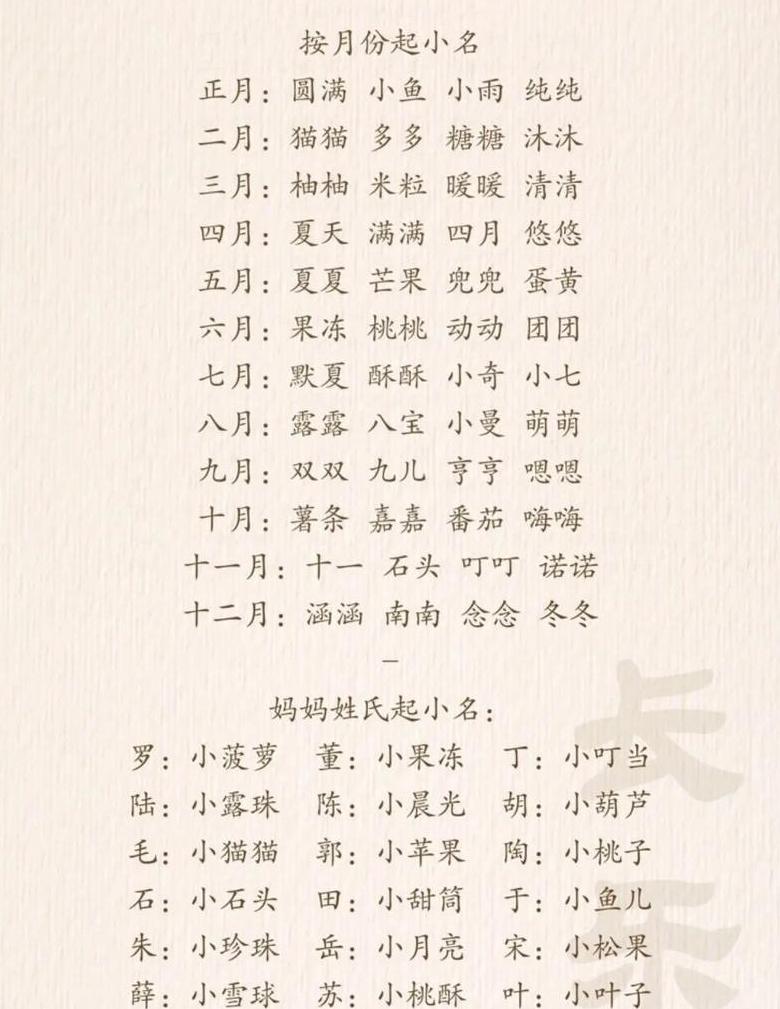 按月份起小名
正月：圆满 小鱼 小雨 纯纯
二月：猫猫 多多 糖糖 沐沐
三月：柚柚 米粒 暖暖 清清
四月：夏天 满满 四月 悠悠
五月：夏夏 芒果 兜兜 蛋黄
六月：果冻 桃桃 动动 团团
七月：默夏 酥酥 小奇 小七
八月：露露 八宝 小曼 萌萌
九月：双双 九儿 亨亨 嗯嗯
十月：薯条 嘉嘉 番茄 嗨嗨
十一月：十一 石头 叮叮 诺诺
十二月：涵涵 南南 念念 冬冬
—
妈妈姓氏起小名：
罗：小菠萝 董：小果冻 丁：小叮当
陆：小露珠 陈：小晨光 胡：小葫芦
毛：小猫猫 郭：小苹果 陶：小桃子
石：小石头 田：小甜筒 于：小鱼儿
朱：小珍珠 岳：小月亮 宋：小松果
薛：小雪球 苏：小桃酥 叶：小叶子